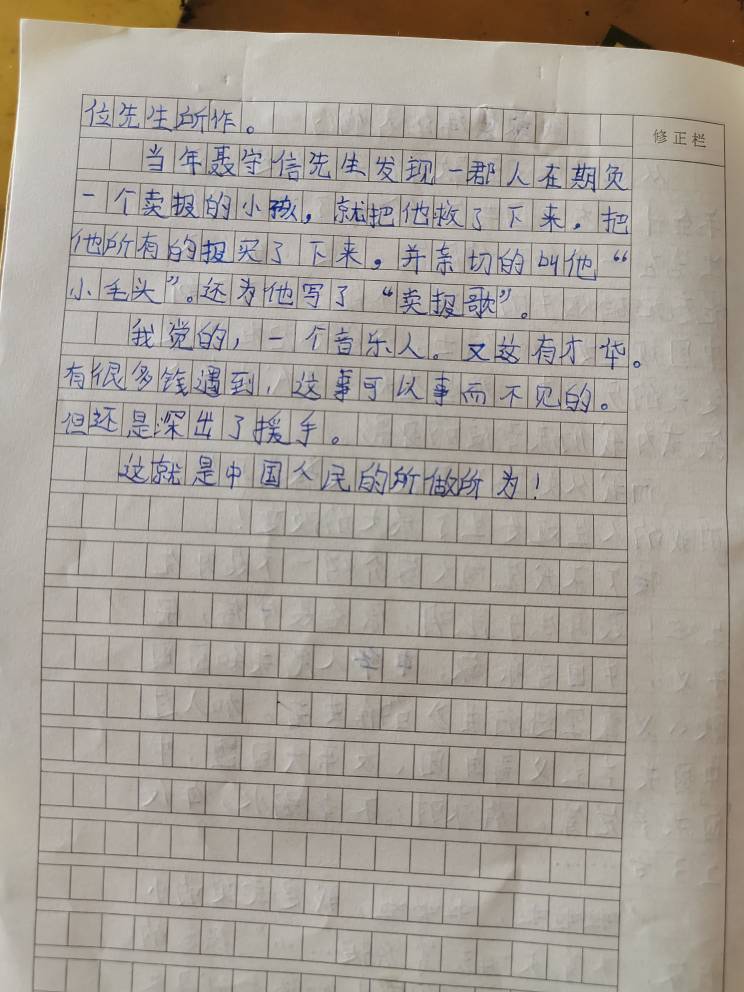 位先生所作。
修正栏
当年聂守信先生发现一郡人在期负
一个卖报的小孩，就把他救了下来，把
他所有的报买了下来。并亲切的叫他“
小毛头”。还为他写了“卖报歌”。
我觉的，一个音乐人。又这有才华。
有很多钱遇到，这事可以事而不见的。
但还是深出了援手。
这就是中国人民的所做所为！